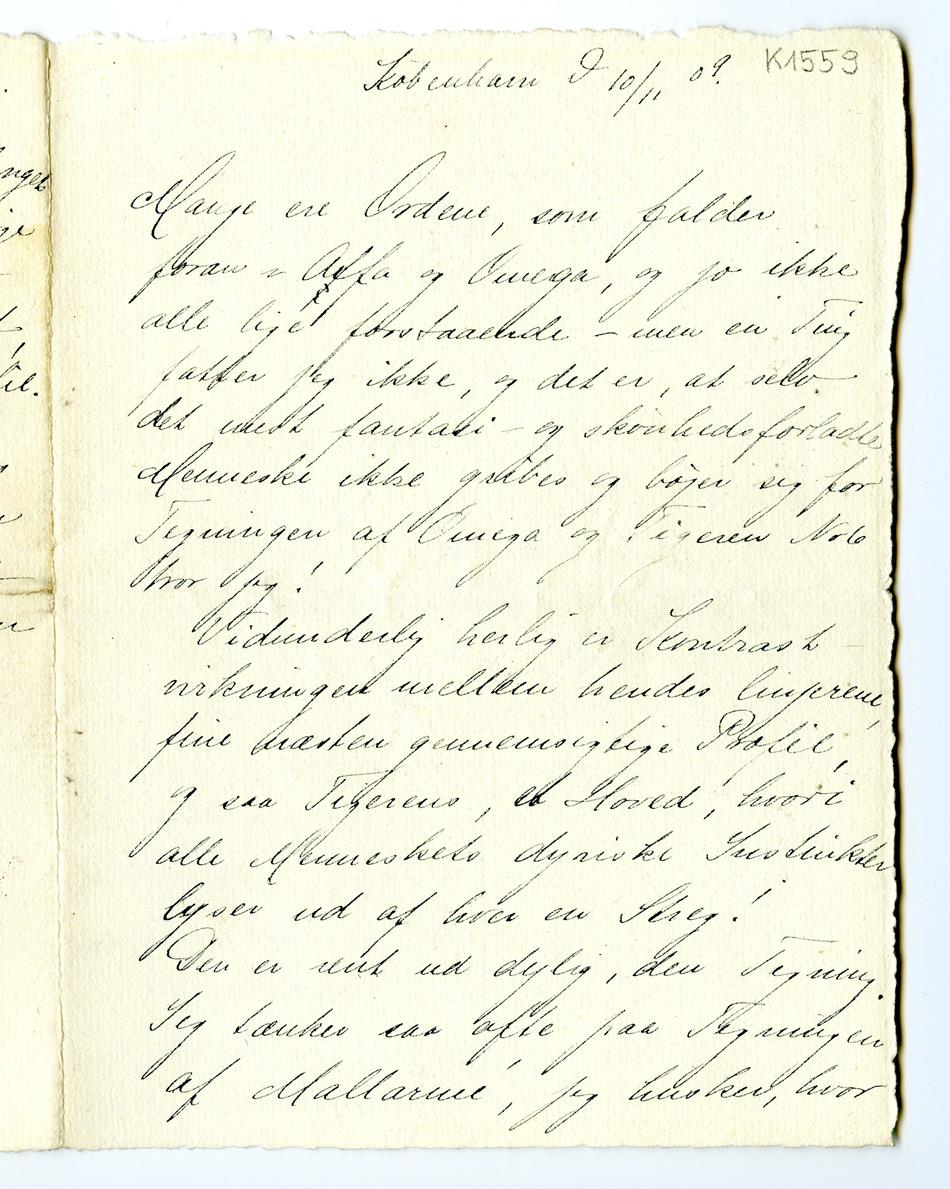 K1559
København D 10/11 09.
Mange ere Ordene, som falder
foran "Alfa og Omega, og jo ikke
alle lige forstaaende – men en Ting
fatter jeg ikke, og det er, at selv
det mest fantasi – og skønhedsforladte
Menneske ikke gribes og bøjer sig for
Tegningen af Omega og Tigeren No 6
tror jeg!
Vidunderlig herlig er Kontrast –
virkningen mellem hendes linjerene,
fine næsten gennemsigtige Profil,
og saa Tigerens, et Hoved, hvori
alle Menneskets dyriske Instinkter
lyser ud af hver en Streg!
Den er rent ud dejlig, den Tegning.
Jeg tænker saa ofte paa Tegningen
af Mallarmé, jeg husker, hvor